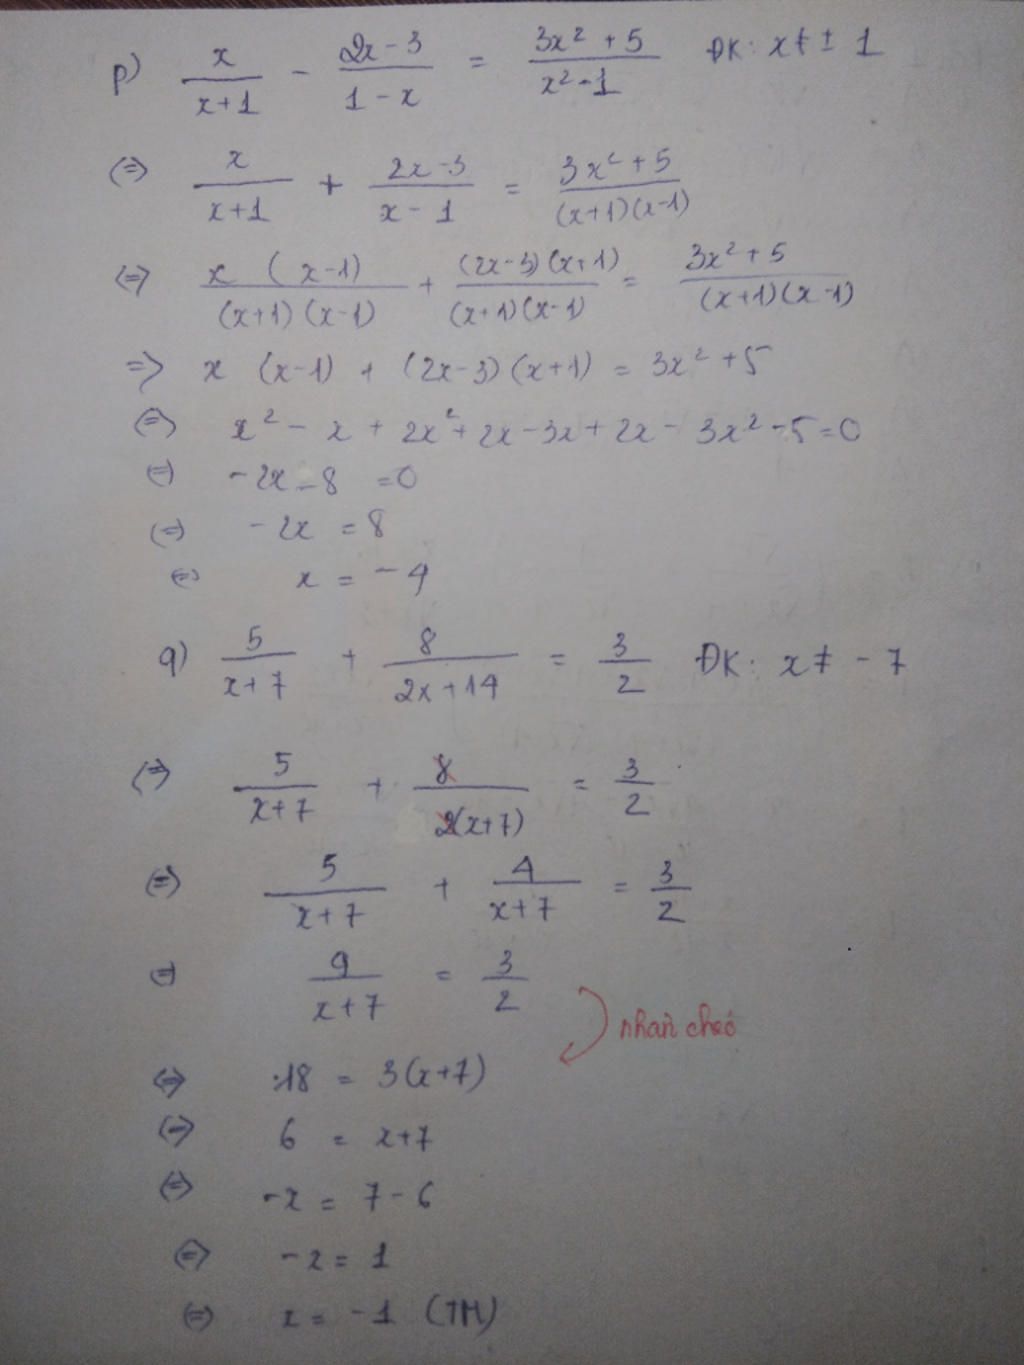 p) x/(x+1) - (2x-3)/(1-x) = (3x² + 5)/(x²-1) ĐK: x ≠ ± 1
(=) x/(x+1) + (2x-3)/(x-1) = (3x² + 5)/((x+1)(x-1))
(=) x(x-1)/((x+1)(x-1)) + (2x-3)(x+1)/((x+1)(x-1)) = (3x² + 5)/((x+1)(x-1))
=> x (x-1) + (2x-3)(x+1) = 3x² + 5
(=) x² - x + 2x² + 2x - 3x + 2x - 3x² - 5 = 0
(=) -2x - 8 = 0
(=) -2x = 8
(=) x = -4
q) 5/(x+7) + 8/(2x+14) = 3/2 ĐK: x ≠ -7
(=) 5/(x+7) + 8/(2(x+7)) = 3/2
(=) 5/(x+7) + 4/(x+7) = 3/2
(=) 9/(x+7) = 3/2
nhân chéo
(=) 18 = 3(x+7)
(=) 6 = x+7
(=) -x = 7-6
(=) -x = 1
(=) x = -1 (TM)